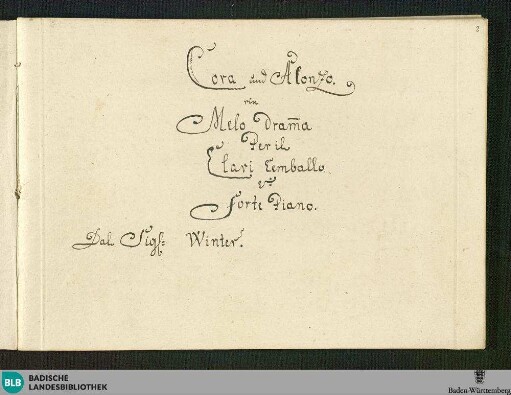 2
Cora und Alonzo.
ein
Melo Dram̄a
Per il
Clavi Cembalo
Forte Piano.
Dal Sigl: Winter.
BLB BADISCHE
LANDESBIBLIOTHEK
Baden-Württemberg